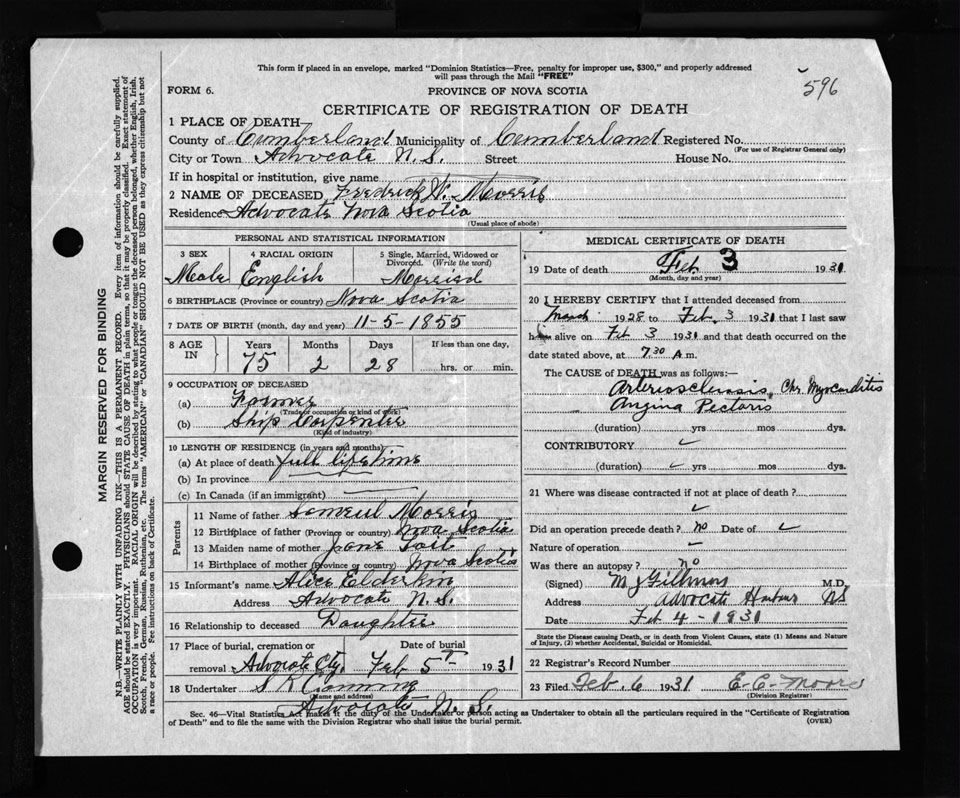 596
This form if placed in an envelope, marked "Dominion Statistics—Free, penalty for improper use, $300," and properly addressed
will pass through the Mail "FREE"
FORM 6. PROVINCE OF NOVA SCOTIA
CERTIFICATE OF REGISTRATION OF DEATH
1 PLACE OF DEATH
County of Cumberland Municipality of Cumberland Registered No.
(For use of Registrar General only)
City or Town Advocate N.S. Street House No.
If in hospital or institution, give name
2 NAME OF DECEASED Fredrick W. Morris
Residence Advocate Nova Scotia
(Usual place of abode)
PERSONAL AND STATISTICAL INFORMATION
3 SEX 4 RACIAL ORIGIN 5 Single, Married, Widowed or
Divorced. (Write the word)
Male English Married
6 BIRTHPLACE (Province or country) Nova Scotia
7 DATE OF BIRTH (month, day and year) 11-5-1855
8 AGE IN Years Months Days If less than one day,
75 2 28 hrs. or min.
9 OCCUPATION OF DECEASED
(a) Farmer
(Trade of occupation or kind of work)
(b) Ship Carpenter
(Kind of industry)
10 LENGTH OF RESIDENCE (in years and months)
(a) At place of death full lifetime
(b) In province
(c) In Canada (if an immigrant)
Parents
11 Name of father Samuel Morris
12 Birthplace of father (Province or country) Nova Scotia
13 Maiden name of mother Jane
14 Birthplace of mother (Province or country) Nova Scotia
15 Informant's name Alice Elderkin
Address Advocate N.S.
16 Relationship to deceased Daughter
17 Place of burial, cremation or Date of burial
removal Advocate Cty. Feb 5th 1931
18 Undertaker S K
(Name and address)
Advocate N.S.
MEDICAL CERTIFICATE OF DEATH
19 Date of death Feb. 3 1931
(Month, day and year)
20 I HEREBY CERTIFY that I attended deceased from
March 1928 to Feb. 3 1931 that I last saw
him alive on Feb 3 1931 and that death occurred on
date stated above, at 7 30 A m.
The CAUSE of DEATH was as follows:—
Arteriosclerosis, Chr. Myocarditis
Angina Pectoris
(duration) yrs mos dys.
CONTRIBUTORY
(duration) yrs mos dys.
21 Where was disease contracted if not at place of death?
Did an operation precede death? No Date of
Nature of operation
Was there an autopsy? no
(Signed) M. J. M.D.
Address Advocate Harbour NS
Date Feb 4 - 1931
State the Disease causing Death, or in death from Violent Causes, state (1) Means and Nature
of Injury, (2) whether Accidental, Suicidal or Homicidal.
22 Registrar's Record Number
23 Filed Feb. 6 1931 E. C. Moore
(Division Registrar)
Sec. 46—Vital Statistics Act makes it the duty of the Undertaker or person acting as Undertaker to obtain all the particulars required in the "Certificate of Registration
of Death" and to file the same with the Division Registrar who shall issue the burial permit. (OVER)
MARGIN RESERVED FOR BINDING
N.B.—WRITE PLAINLY WITH UNFADING INK—THIS IS A PERMANENT RECORD. Every item of information should be carefully supplied.
AGE should be stated EXACTLY. PHYSICIANS should STATE CAUSE OF DEATH in plain terms, so that it may be properly classified. Exact statement of
OCCUPATION is very important. RACIAL ORIGIN will be described by stating to what people or tongue the deceased person belonged, whether English, Irish,
Scotch, French, German, Russian, Ruthenian, etc. The terms "AMERICAN" or "CANADIAN" SHOULD NOT BE USED as they express citizenship but not
a race or people. See instructions on back of Certificate.